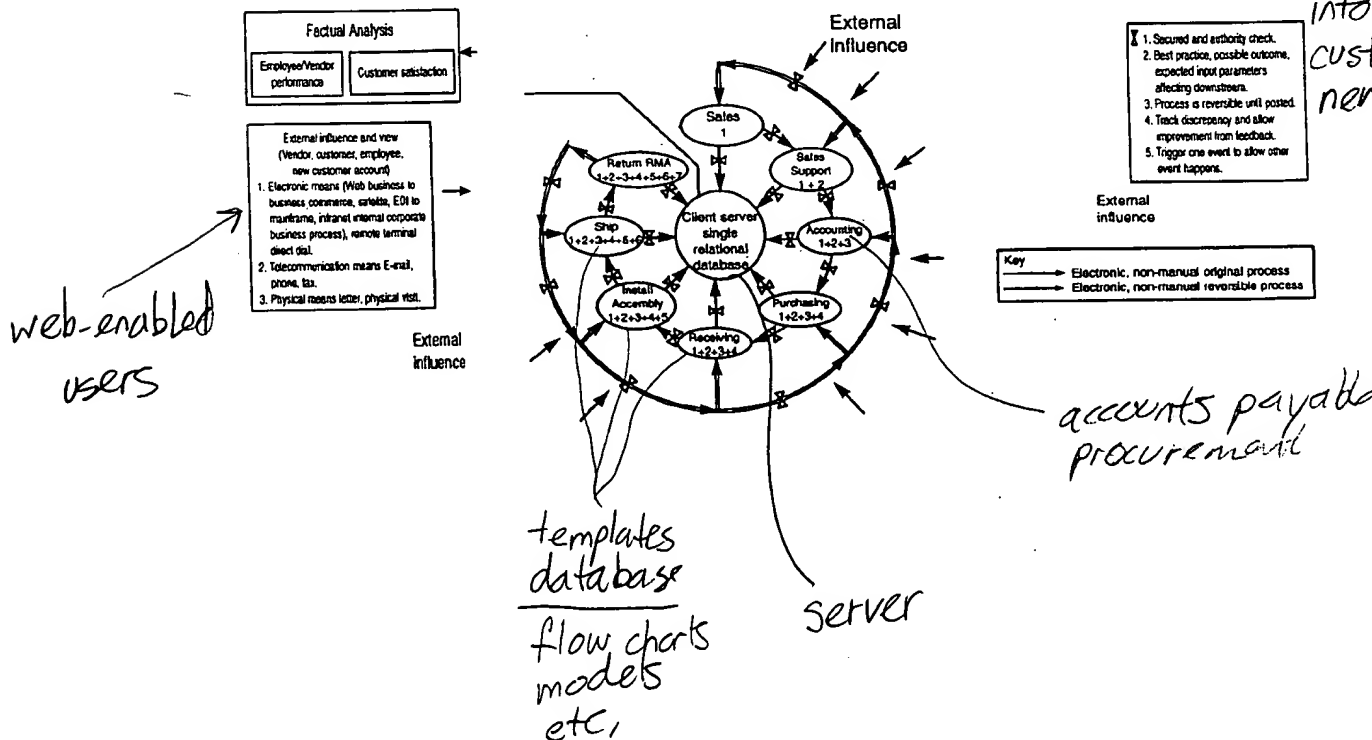 Factual Analysis
Employee/Vendor
performance
Customer satisfaction
External influence and view
(Vendor, customer, employee,
new customer account)
1. Electronic means (Web business to
business commerce, satellite, EDI to
mainframe, intranet internal corporate
business process), remote terminal
direct dial.
2. Telecommunication means E-mail,
phone, fax.
3. Physical means letter, physical visit.
web-enabled
users
External
influence
External
Influence
Sales
1
Sales
Support
1 + 2
Accounting
1+2+3
Purchasing
1+2+3+4
Receiving
1+2+3+4
Install
Accembly
1+2+3+4+5
Ship
1+2+3+4+5+6
Return RMA
1+2+3+4+5+6+7
Client server
single
relational
database
templates
database
flow charts
models
etc,
server
accounts payable
procurement
into
cust
1. Secured and authority check.
2. Best practice, possible outcome,
expected input parameters
affecting downstream.
3. Process is reversible until posted.
4. Track discrepancy and allow
improvement from feedback.
5. Trigger one event to allow other
event happens.
External
influence
Key
Electronic, non-manual original process
Electronic, non-manual reversible process